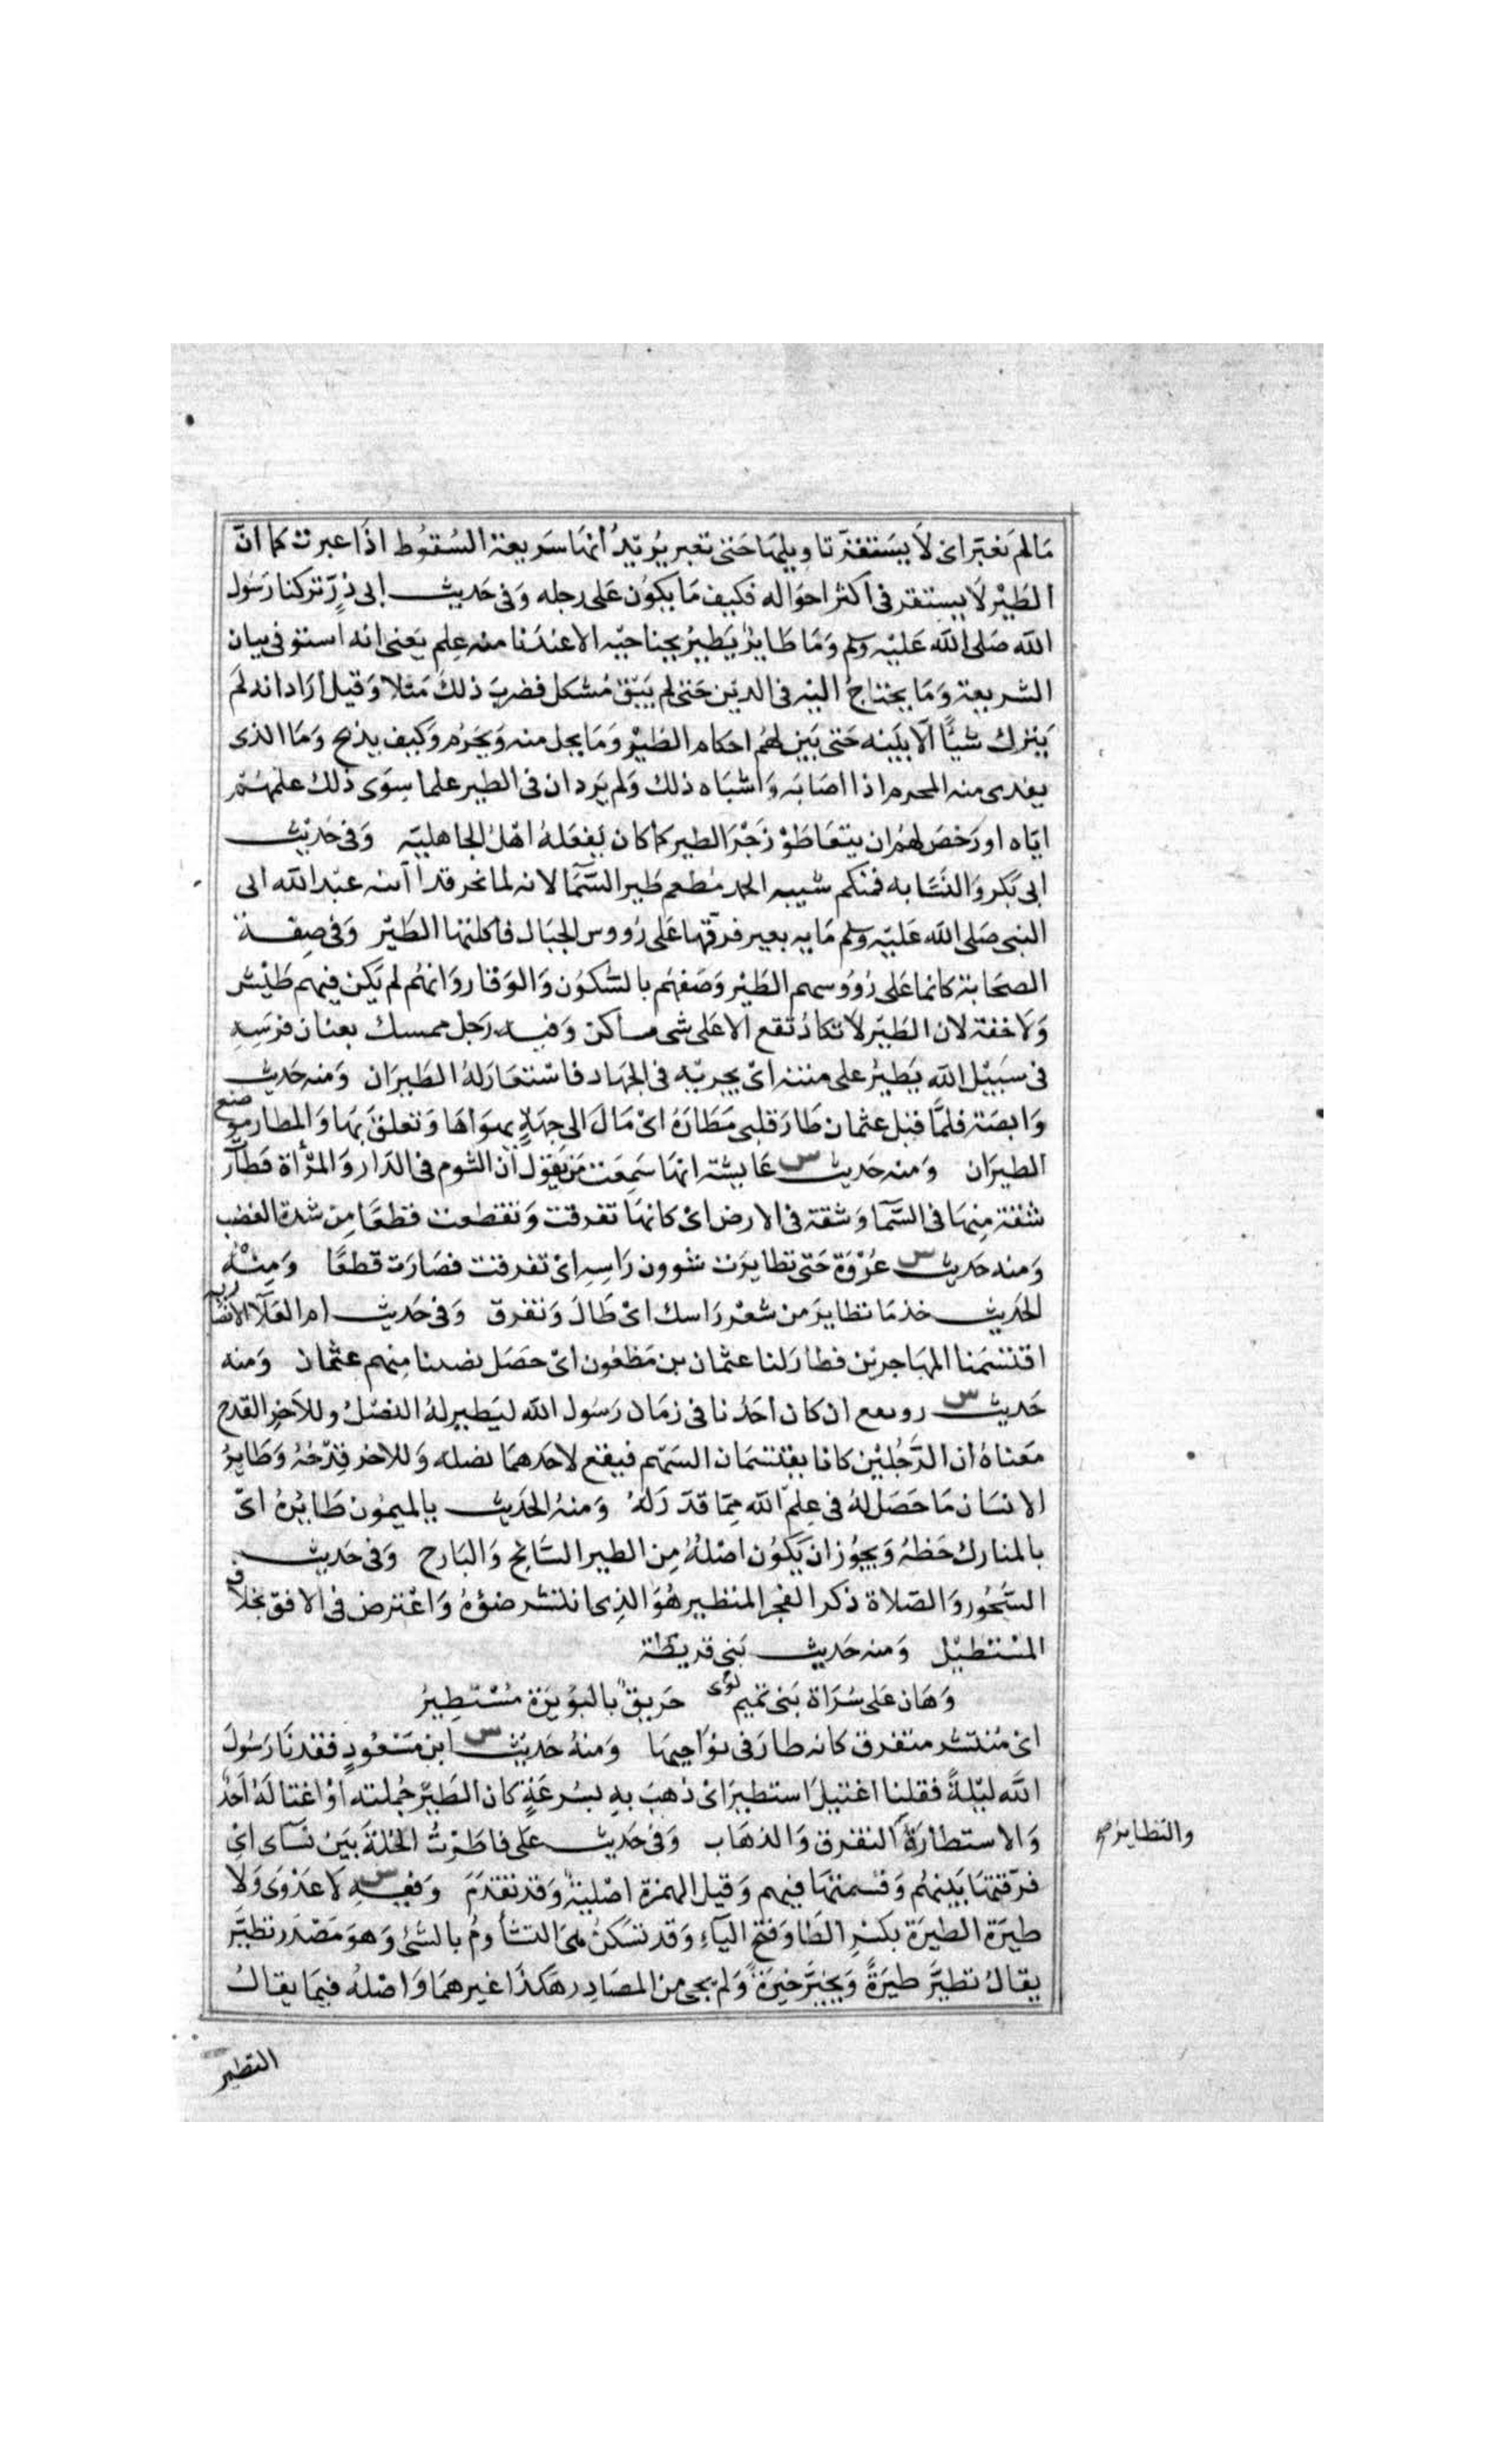 مَا لم تعبّر اى لاَ يَستقر تاويلهَا حَتى تعبر يُريدُ أنهَا سَريعة السُقوُط اذَا عبرت كما انّ
الطَيْر لاَ يستقر فى اكثر احوَاله فكيف مَا يكوُن عَلى رجله وَفى حَديث ابى ذرّ تركنا رَسُول
الله صَلى الله عَليْه وسلم وَمَا طَاير يَطيرُ بجناحيْه الا عندَنا منه عِلم يَعنى انه استوفى بيان
الشريعة وَمَا يحتاجُ اليْه فى الدّين حَتى لم يَبْق مُشكل فضربَ ذلك مَثلا وَقيل أرَاد انه لَم
يَترك شيأً الاّ بَيّنه حَتى بَين لهُم احكام الطَيْر وَمَا يحل منه وَيَحرُم وَكيف يذبح وَمَا الذى
يفدى منه المحرم اذا اصَابَه وَاشبَاه ذلك وَلم يَرد ان فى الطير علما سِوَى ذلك علمهُم
ايّاه او رَخصَ لهُم ان يتعَاطَوْ زَجْرَ الطير كما كان يَفعَلهُ اهْلُ الجاهليّه وَفى حَديْث
ابى بَكر وَالنسّابه فمنكم شيبه الحمد مُطعم طَير السَّمَا لانه لما نحر فدا آبنه عبْد الله ابى
النبى صَلى الله عَليْه وسلم مَايه بعير فرّقها عَلى رُووس الجبَال فأكلتها الطَيْر وَفى صِفة
الصحَابة كانما عَلى رُوُوسهم الطَيْر وَصَفهُم بالسُّكوُن وَالوَقار وَانهُم لم يَكن فيهم طَيْش
وَلا خفة لان الطَيْر لا تكادُ تقع الا عَلى شى ساكن وَفيه رَجل ممسك بعنان فرَسِهِ
فى سَبيْل الله يَطيرُ على متنه اىْ يجريْه فى الجهَاد فاسْتعَارَ لهُ الطَيرَان وَمنه حَديث
وَابصَة فلمّا قتل عثمان طَارَ قلبى مَطَارَهُ اىْ مَال الى جهَةٍ يهوَاهَا وَتعلقَ بهَا وَالمطار موضع
الطيرَان وَمنه حَديث س عَايشة انهَا سَمِعَت مَن يَقوْل أن الشوم فى الدَار وَالمرْأة فطَارَ
شقة مِنهَا فى السَّمَا وَشقة فى الارض اىْ كانهَا تفرقت وَتقطعت قطعًا مِن شدة الغضب
وَمنه حَديث س عُرْوَة حَتى تطايرَت شوون رَاسِهِ اىْ تفرقت فصَارَت قطعًا وَمِنْهُ
الحَديث خذ مَا تطايرَ من شعْر رَاسك اىْ طَالَ وَتفرق وَفى حَديث ام العَلآ الانصَاريه
اقتسَمنا المهَاجريْن فطارَ لنا عثمان بن مَظعُون اىْ حَصَل نصيبنا مِنهم عثمان وَمنه
حَديث س رويفع ان كان احَدُنا فى زمَان رَسُول الله ليَطير لهُ النصْلُ وللآخر القدح
مَعناهُ ان الرَّجُليْن كانا يقتسمَان السَهْم فيقع لاحَدهمَا نصله وَللاخر قِدْحُهُ وَطَايِرُ
الانسَان مَا حَصَل لهُ فى عِلم الله ممّا قدّرَ لهُ وَمنهُ الحَديث بالميمُون طَايْرهُ اىّ
بالمبارك حَظهُ وَيجُوز ان يَكوُن اصْلهُ مِن الطير السَّانح وَالبَارح وَفى حَديث
السَّحُور وَالصّلاة ذكر الفجر المستطير هُوَ الذِى انتشر ضَوْءهُ وَاعْترض فى الافق بخلاف
المسْتطيْل وَمنه حَديث بَنى قريظة
وَهَان عَلى سُرَاة بَنى تميم لؤى حَريقٌ بالبُوَيرَة مُسْتطِيرُ
اىْ مُنتشر متفرق كانه طارَ فى نوَاحيهَا وَمنهُ حَديْث س ابن مَسْعُودٍ فقدنَا رَسُولَ
الله ليْلةً فقلنا اغتيلَ استطيرَ اىْ ذهبَ بهِ بسُرعَةٍ كان الطَيْر حملته اوْ اغتالهُ احَدٌ
وَالاستطارَةُ التفرق وَالذهَاب وَفى حَديث عَلى فاطَرْتُ الحُلةَ بَين نسَآى اىْ
فرّقتهَا بَينهُم وَقسمتهَا فيهم وَقيل الهمزة اصْليةٌ وَقد تقدمَ وَفيهِ س لا عَدْوَى وَلا
طيَرَة الطيرَة بكسْرِ الطَا وَفتح اليآءِ وَقد تسَكنُ هىَ التشأومُ بالشئ وَهوَ مَصْدَر تطيَّر
يقالُ تطيَّرَ طيَرَةً وَتخيَّرَ خيَرَةً وَلم يجى من المصَادِر هَكذا غيرهمَا وَاصْلهُ فيمَا يقالُ
والتطاير صح
التطير